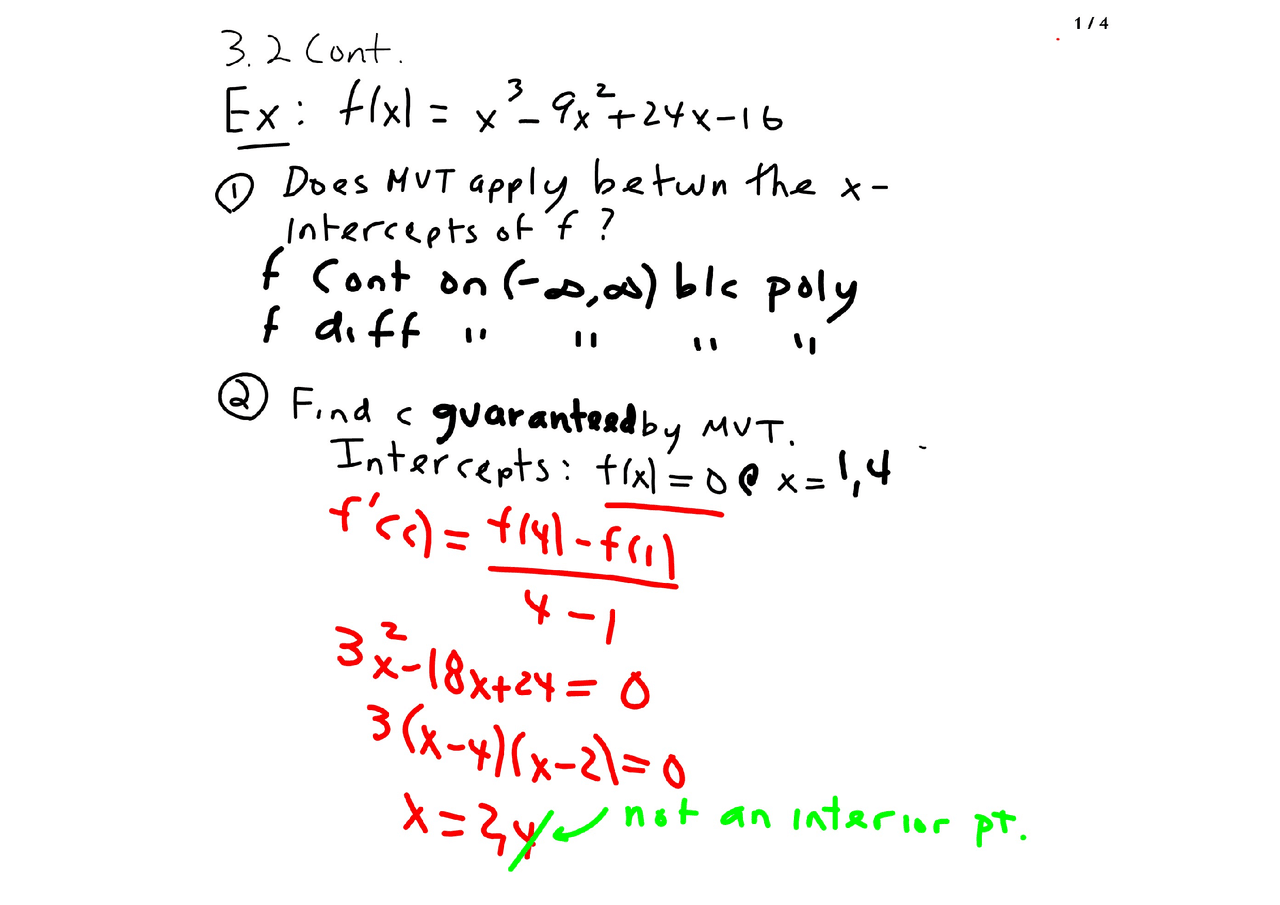 1 / 4
3.2 Cont.
Ex: f(x) = x³ - 9x² + 24x - 16
① Does MVT apply betwn the x-
intercepts of f ?
f cont on (-∞,∞) b/c poly
f diff " " " "
② Find c guaranteed by MVT.
Intercepts: f(x) = 0 @ x = 1,4
f'(c) = f(4) - f(1)
4 - 1
3x² - 18x + 24 = 0
3(x-4)(x-2) = 0
x = 2,4 not an interior pt.